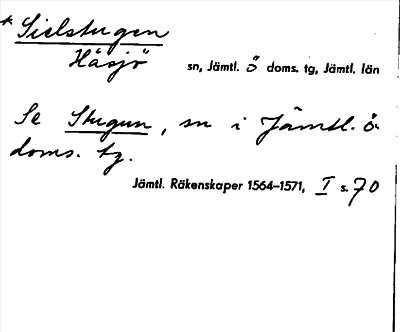 * Sielstugen
Häsjö sn, Jämtl. ö doms. tg, Jämtl. län
Se Stugun, sn i Jämtl. ö.
doms. tg.
Jämtl. Räkenskaper 1564–1571, I s. 70